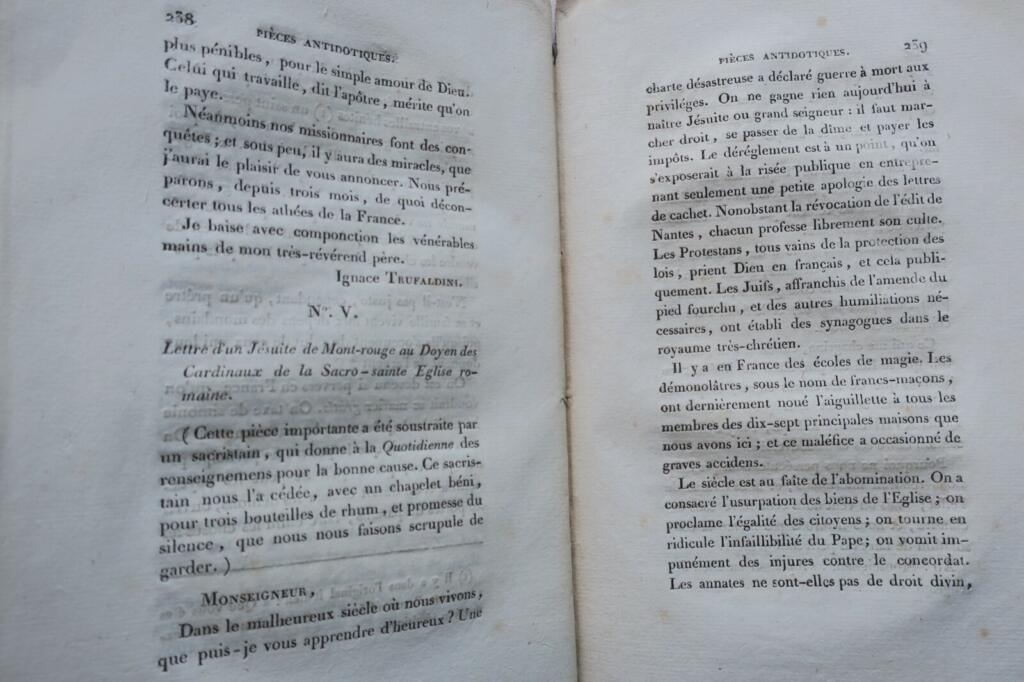 238
PIÈCES ANTIDOTIQUES.
plus pénibles, pour le simple amour de Dieu.
Celui qui travaille, dit l'apôtre, mérite qu'on
le paye.
Néanmoins nos missionnaires font des con-
quêtes; et sous peu, il y aura des miracles, que
j'aurai le plaisir de vous annoncer. Nous pré-
parons, depuis trois mois, de quoi décon-
certer tous les athées de la France.
Je baise avec componction les vénérables
mains de mon très-révérend père.
Ignace TRUFALDINI.
No. V.
Lettre d'un Jésuite de Mont-rouge au Doyen des
Cardinaux de la Sacro-sainte Eglise ro-
maine.
(Cette pièce importante a été soustraite par
un sacristain, qui donne à la Quotidienne des
renseignemens pour la bonne cause. Ce sacris-
tain nous l'a cédée, avec un chapelet béni,
pour trois bouteilles de rhum, et promesse du
silence, que nous nous faisons scrupule de
garder.)
MONSEIGNEUR,
Dans le malheureux siècle où nous vivons,
que puis-je vous apprendre d'heureux? Une
PIÈCES ANTIDOTIQUES. 239
charte désastreuse a déclaré guerre à mort aux
priviléges. On ne gagne rien aujourd'hui à
naître Jésuite ou grand seigneur : il faut mar-
cher droit, se passer de la dîme et payer les
impôts. Le déréglement est à un point, qu'on
s'exposerait à la risée publique en entrepre-
nant seulement une petite apologie des lettres
de cachet. Nonobstant la révocation de l'édit de
Nantes, chacun professe librement son culte.
Les Protestans, tous vains de la protection des
lois, prient Dieu en français, et cela publi-
quement. Les Juifs, affranchis de l'amende du
pied fourchu, et des autres humiliations né-
cessaires, ont établi des synagogues dans le
royaume très-chrétien.
Il y a en France des écoles de magie. Les
démonolâtres, sous le nom de francs-maçons,
ont dernièrement noué l'aiguillette à tous les
membres des dix-sept principales maisons que
nous avons ici; et ce maléfice a occasionné de
graves accidens.
Le siècle est au faîte de l'abomination. On a
consacré l'usurpation des biens de l'Eglise; on
proclame l'égalité des citoyens; on tourne en
ridicule l'infaillibilité du Pape; on vomit im-
punément des injures contre le concordat.
Les annates ne sont-elles pas de droit divin,